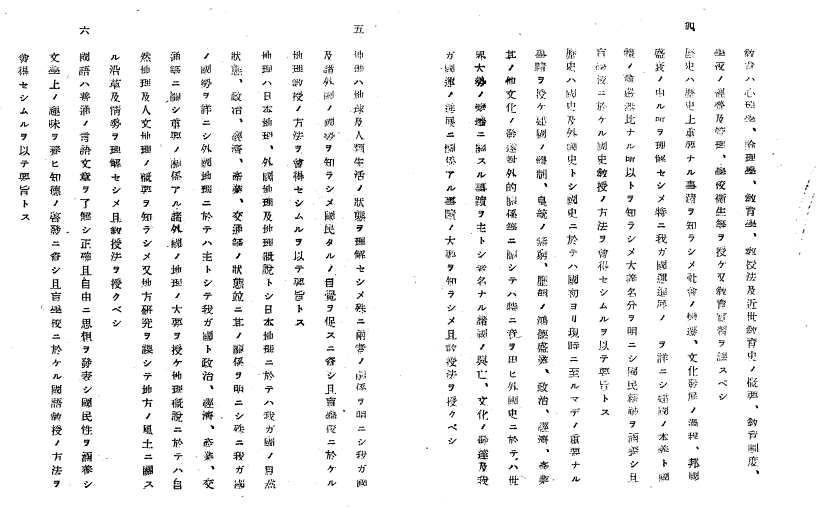 教育ハ心理學、論理學、教育學、教授法及近世教育史ノ概要、教育制度、
學校ノ經營及管理、學校衛生等ヲ授ケ又教育實習ヲ課スベシ
四 歷史ハ歷史上重要ナル事蹟ヲ知ラシメ社會ノ變遷、文化發展ノ過程、邦國
盛衰ノ由ル所ヲ理解セシメ特ニ我ガ國運進展ノ ヲ詳ニシ建國ノ本義ト國
體ノ尊嚴無比ナル所以トヲ知ラシメ大義名分ヲ明ニシ國民精神ヲ涵養シ且
盲學校ニ於ケル國史教授ノ方法ヲ會得セシムルヲ以テ要旨トス
歷史ハ國史及外國史トシ國史ニ於テハ國初ヨリ現時ニ至ルマデノ重要ナル
事蹟ヲ授ケ建國ノ體制、皇統ノ無窮、歷朝ノ鴻德盛業、政治、經濟、產業
其ノ他文化ノ發達對外的關係等ニ關シテハ特ニ意ヲ用ヒ外國史ニ於テハ世
界大勢ノ變遷ニ關スル事蹟ヲ主トシ著名ナル諸國ノ興亡、文化ノ發達及我
ガ國運ノ進展ニ關係アル事蹟ノ大要ヲ知ラシメ且教授法ヲ授クベシ
五 地理ハ地球及人類生活ノ狀態ヲ理解セシメ殊ニ兩者ノ關係ヲ明ニシ我ガ國
及諸外國ノ國勢ヲ知ラシメ國民タルノ自覺ヲ促スニ資シ且盲學校ニ於ケル
地理教授ノ方法ヲ會得セシムルヲ以テ要旨トス
地理ハ日本地理、外國地理及地理槪說トシ日本地理ニ於テハ我ガ國ノ自然
狀態、政治、經濟、產業、交通等ノ狀態竝ニ其ノ關係ヲ明ニシ殊ニ我ガ國
ノ國勢ヲ詳ニシ外國地理ニ於テハ主トシテ我ガ國ト政治、經濟、產業、交
通等ニ關シ重要ノ關係アル諸外國ノ地理ノ大要ヲ授ケ地理槪說ニ於テハ自
然地理及人文地理ノ槪要ヲ知ラシメ又地方硏究ヲ課シテ地方ノ風土ニ關ス
ル沿革及情勢ヲ理解セシメ且教授法ヲ授クベシ
六 國語ハ普通ノ言語文章ヲ了解シ正確且自由ニ思想ヲ發表シ國民性ヲ涵養シ
文學上ノ趣味ヲ養ヒ知德ノ啓發ニ資シ且盲學校ニ於ケル國語教授ノ方法ヲ
會得セシムルヲ以テ要旨トス